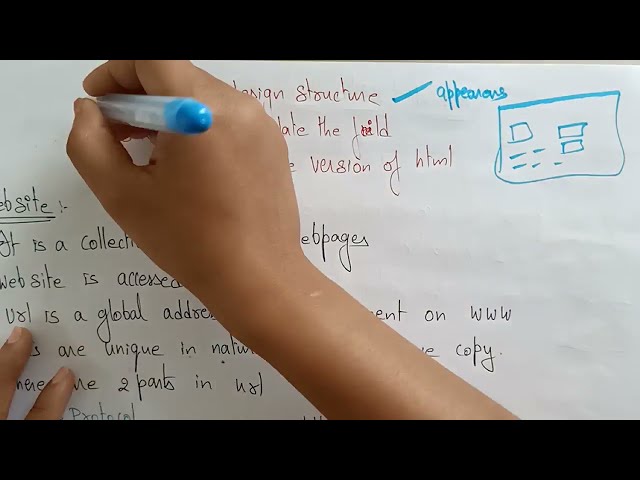 design structure ✓ appearens
date the feild
version of html
ebsite :-
It is a collecti ebpages
website is accessed
url is a global addres ent on www
s are unique in natu e copy.
here are 2 parts in url
Protocol